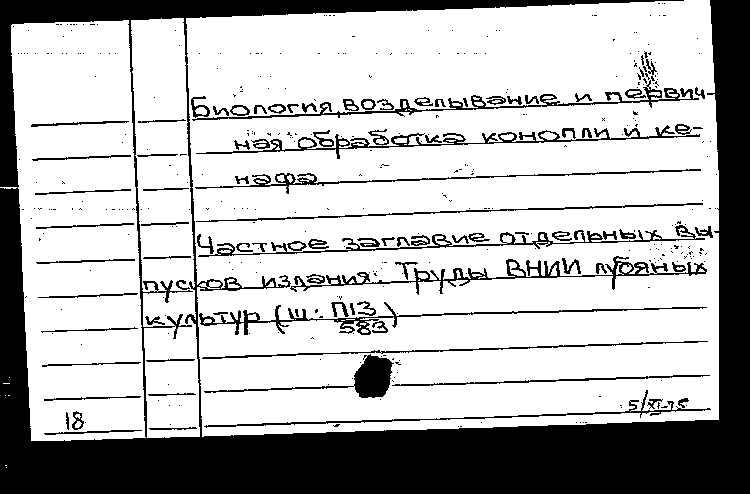 Биология, возделывание и первич-
ная обработка конопли и ке-
нафа.
Частное заглавие отдельных вы-
пусков издания: Труды ВНИИ лубяных
культур (Ш: П13/583)
18
5/XI-75